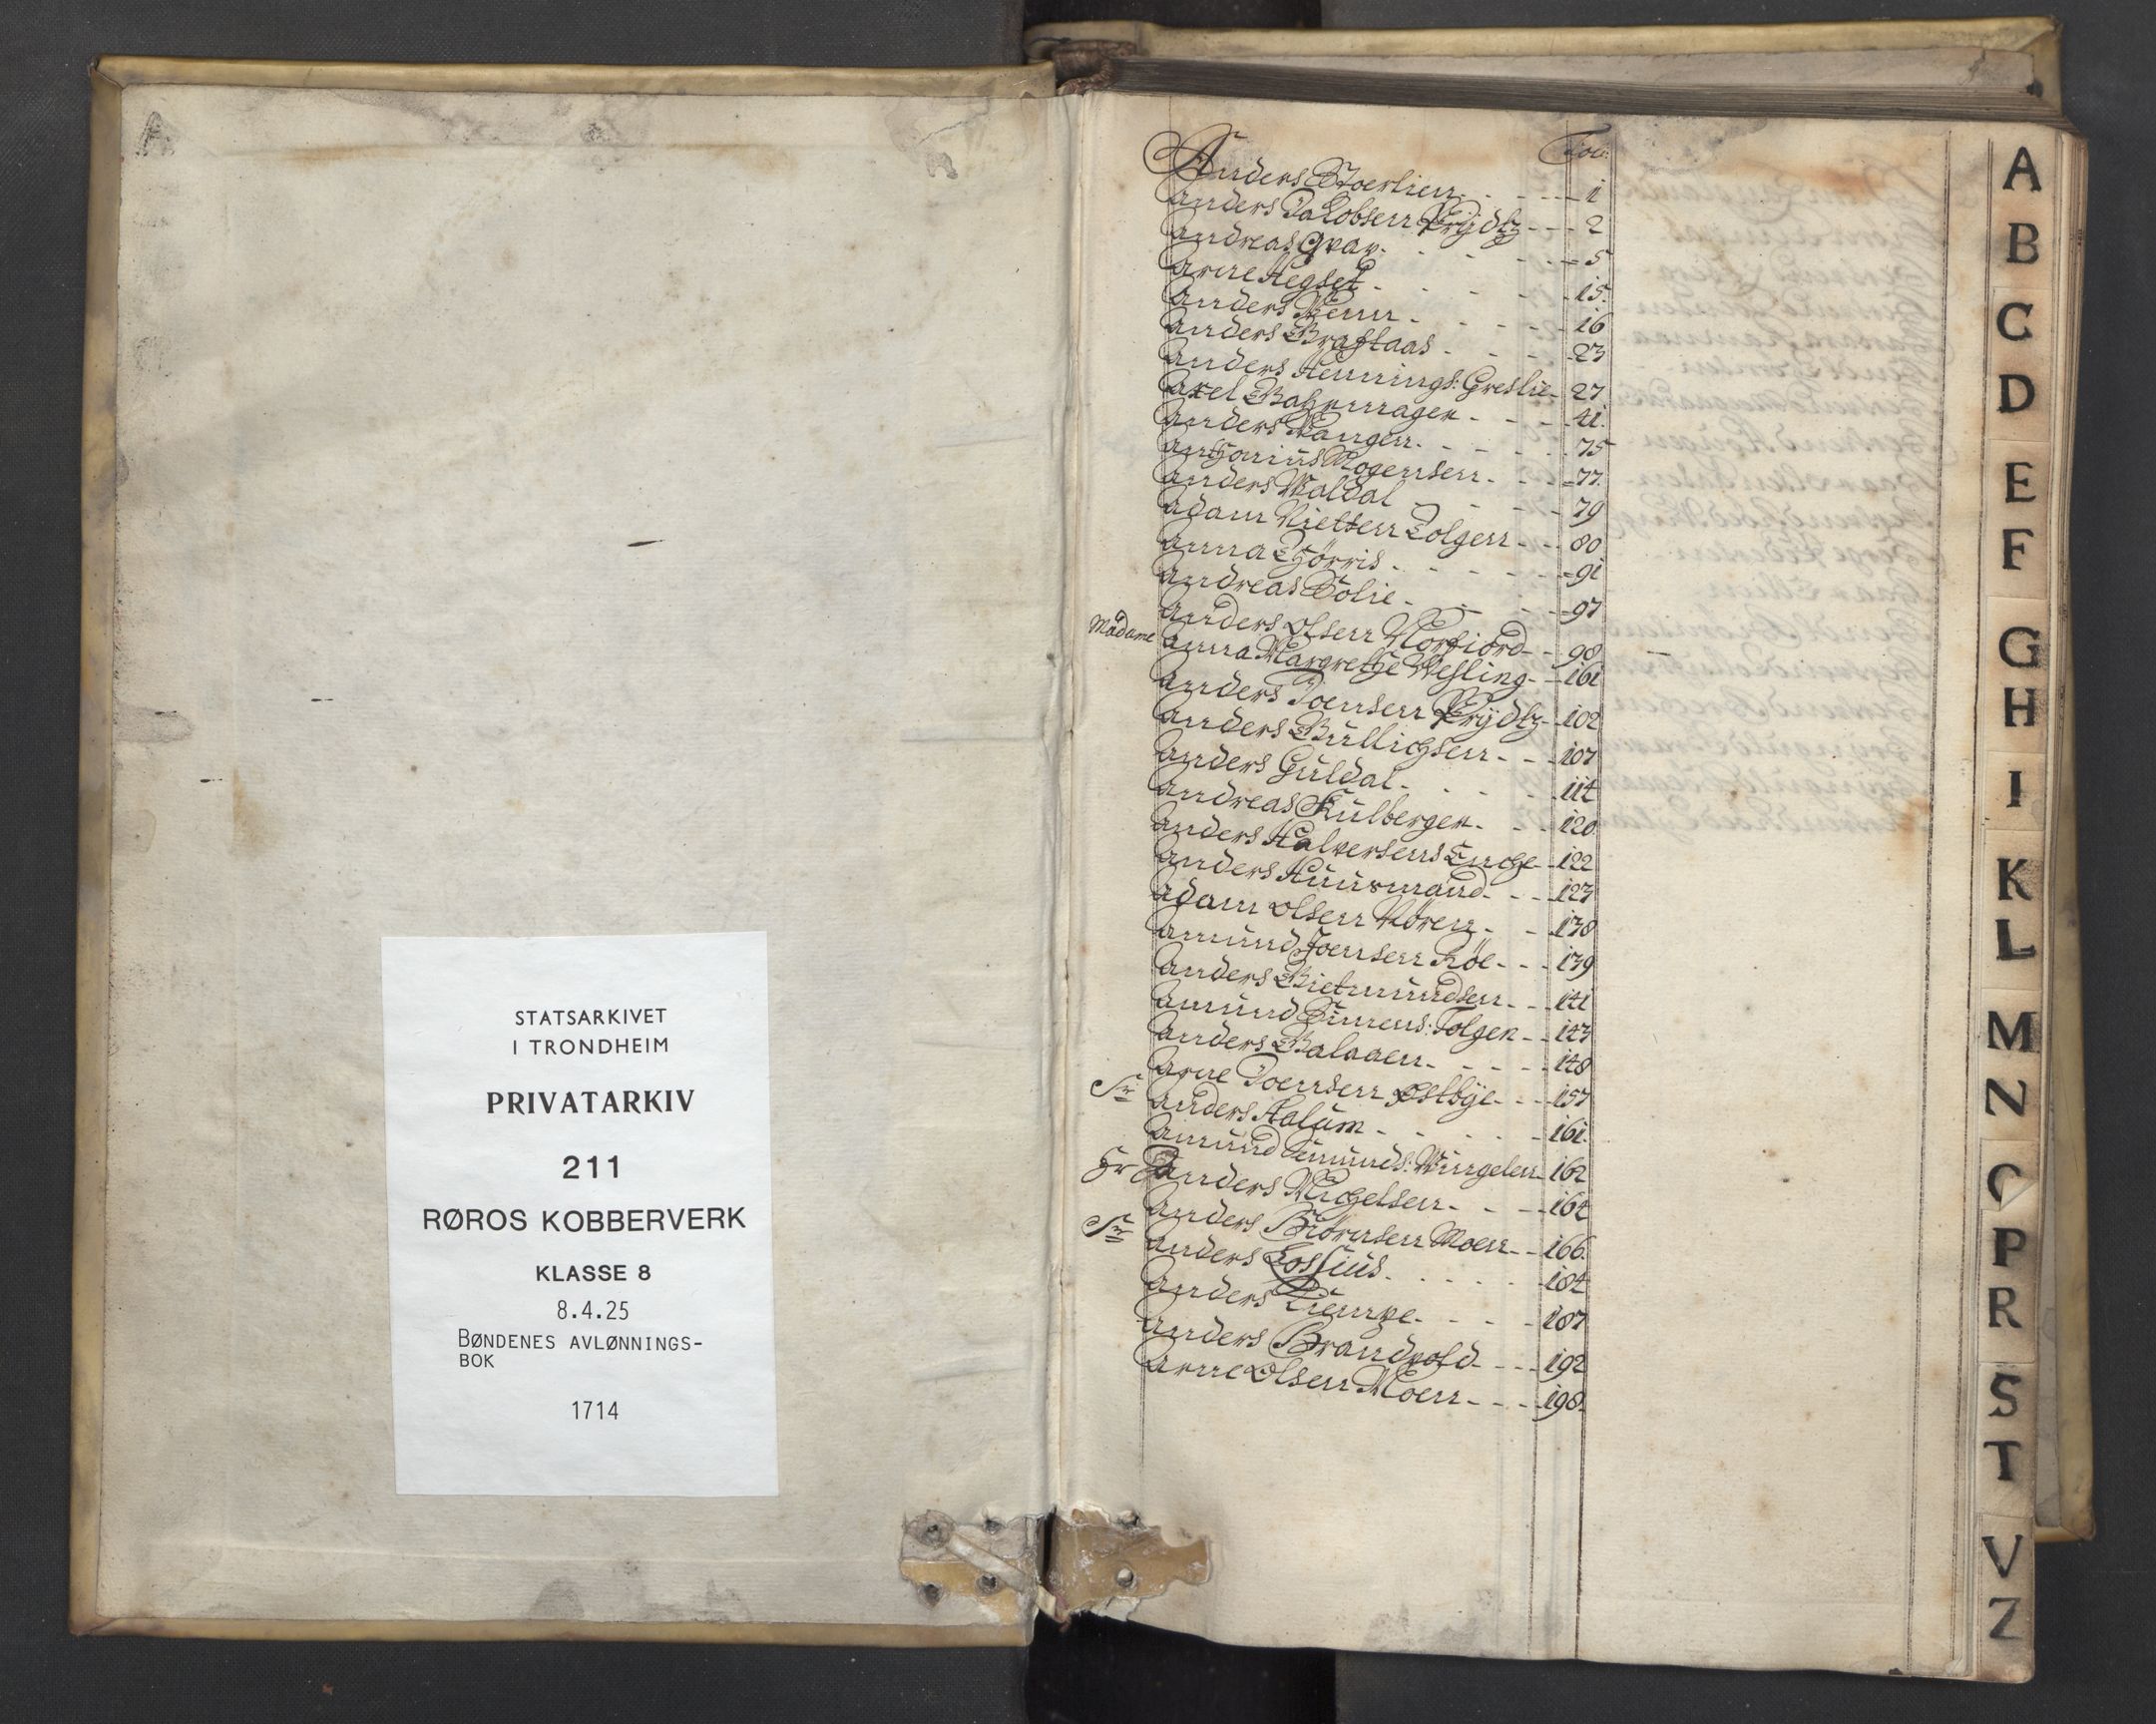 STATSARKIVET
I TRONDHEIM
PRIVATARKIV
211
RØROS KOBBERVERK
KLASSE 8
8.4.25
BØNDENES AVLØNNINGS-
BOK
1714
Fol:
Anders Stoerlien 1
Anders Jakobsen Prÿdtz 2
Andreas Grav 5
Arne Hegset 15
Anders 16
Anders Graftaas 23
Anders Hennings: Greslie 27
Axel Bahrmager 41
Anders Vangen 75
Anthonius Mogensen 77
Anders Waldal 79
Adam Nielsen Tolgen 80
Anna Thørris 91
Andreas Solie 97
Anders Olsen Norfiord 98
Madame Anna Margrethe Wesling 101
Anders Joensen Prÿdtz 102
Anders Gullichsen 107
Anders Guldal 114
Andreas Kulberger 120
Anders Halversens Enche 122
Anders Huusmand 127
Adam Olsen Røren 138
Amund Joensen Røe 139
Anders Bietmundsen 141
Amund Simens: Tolgen 147
Anders Balaaen 148
Arne Joensen Østbÿe 157
Sr Anders Aalum 161
Amund Amunds: Vingelen 162
Hr Anders Michelsen 164
Anders Biørnsen Moen 166
Sr Anders Lossius 184
Anders 187
Anders Brandvold 192
Arne Olsen Moen 198
A
B
C
D
E
F
G
H
I
K
L
M
N
O
P
R
S
T
V
Z